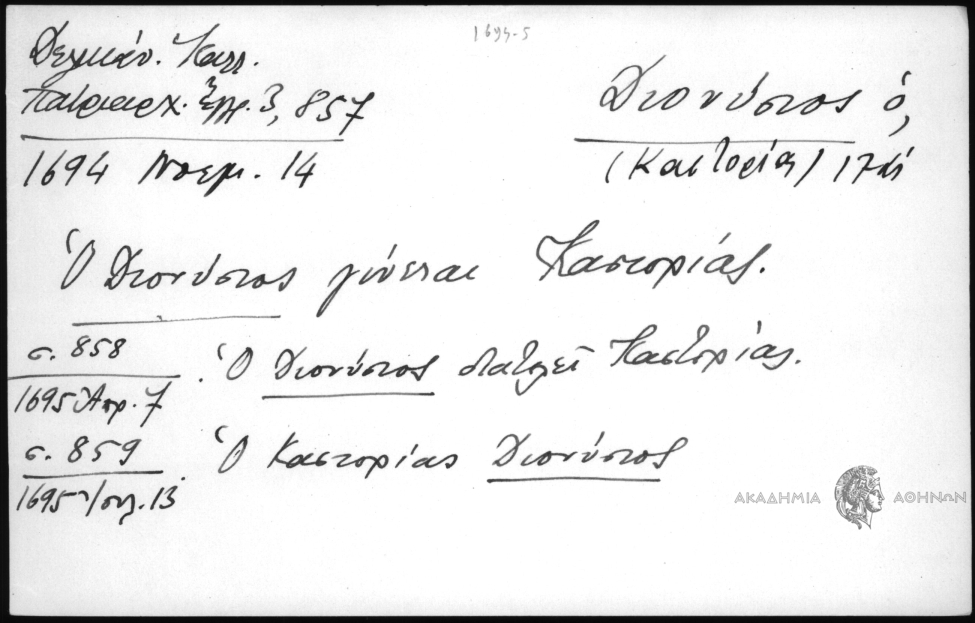 1694-5
Δελικάν. Καλλ.
Πατριαρχ. Ἔγγρ. 3, 857
1694 Νοεμ. 14
Διονύσιος ὁ,
(Καστορίας) 17
Ὁ Διονύσιος γίνεται Καστορίας.
σ. 858
1695 Ἀπρ. 7
Ὁ Διονύσιος διατελεῖ Καστορίας.
σ. 859
1695 Ἰουλ. 13
Ὁ Καστορίας Διονύσιος
ΑΚΑΔΗΜΙΑ ΑΘΗΝΩΝ